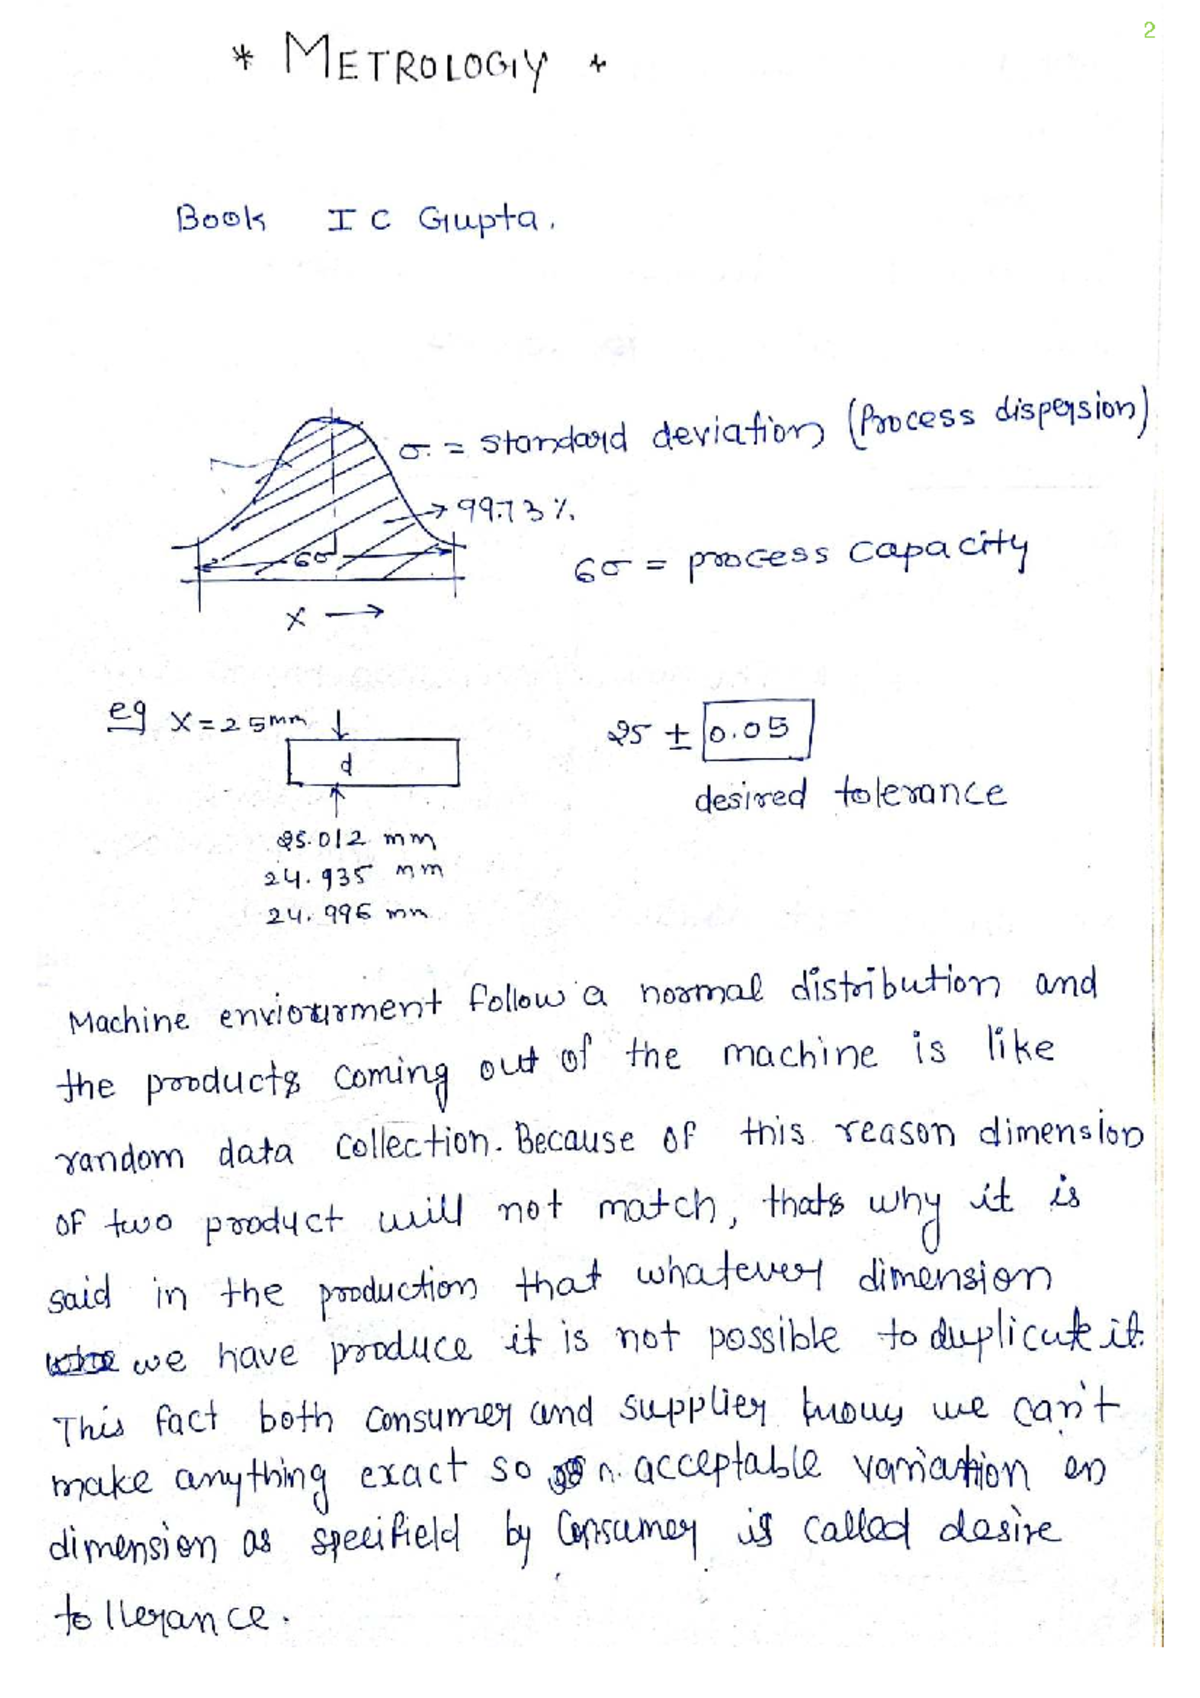 2
* METROLOGY *
Book I C Gupta.
σ = standard deviation (Process dispersion)
99.73 %.
6σ
6σ = process capacity
X →
eg X = 25mm
d
25 ± 0.05
desired tolerance
25.012 mm
24.935 mm
24.996 mm
Machine enviorurment follow a normal distribution and
the products coming out of the machine is like
random data collection. Because of this reason dimension
of two product will not match, thats why it is
said in the production that whatever dimension
we have produce it is not possible to duplicate it.
This fact both consumer and supplier knows we can't
make anything exact so acceptable variation on
dimension as specifield by Consumer is called desire
tollerance.